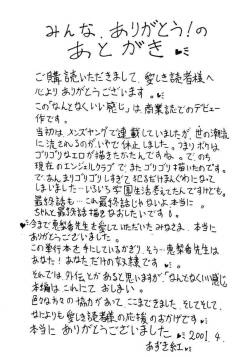 みんな、ありがとう!の
あとがき
ご購読いただきまして、愛しき読者様へ
心よりありがとうございます。
この「なんとなくいい感じ」は商業誌でのデビュー
作です。
当初はメンズヤングで連載していましたが、世の潮流
に流されるのがいやで休止しました。つまりボクは
ゴリゴリなエロが描きたかたんですね。で、のち
現在のエンジェルクラブでまたゴリゴリ描いたのです。
であんまりゴリゴリしすぎて
しまいました…いろいろ学園生活考えてたんですけども。
最終話も…これ最終話じゃないよ本当に。
ちゃんと最終話描きなおしたいです。
今まで恵梨香先生を愛していただいたみなさま、本当に
ありがとうございました。
この単行本を手にしているかぎり、そう…恵梨香先生は
あなた!あなただけの奴隷です
それでは、外伝とかあると思いますが、「なんとなくいい感じ」
本編はこれにておしまい。
色々な方々の協力があって、ここまできました、そしてそして、
なによりも愛しき読者様の応援のおかげです
本当にありがとうございました 2001.4.
あずき紅